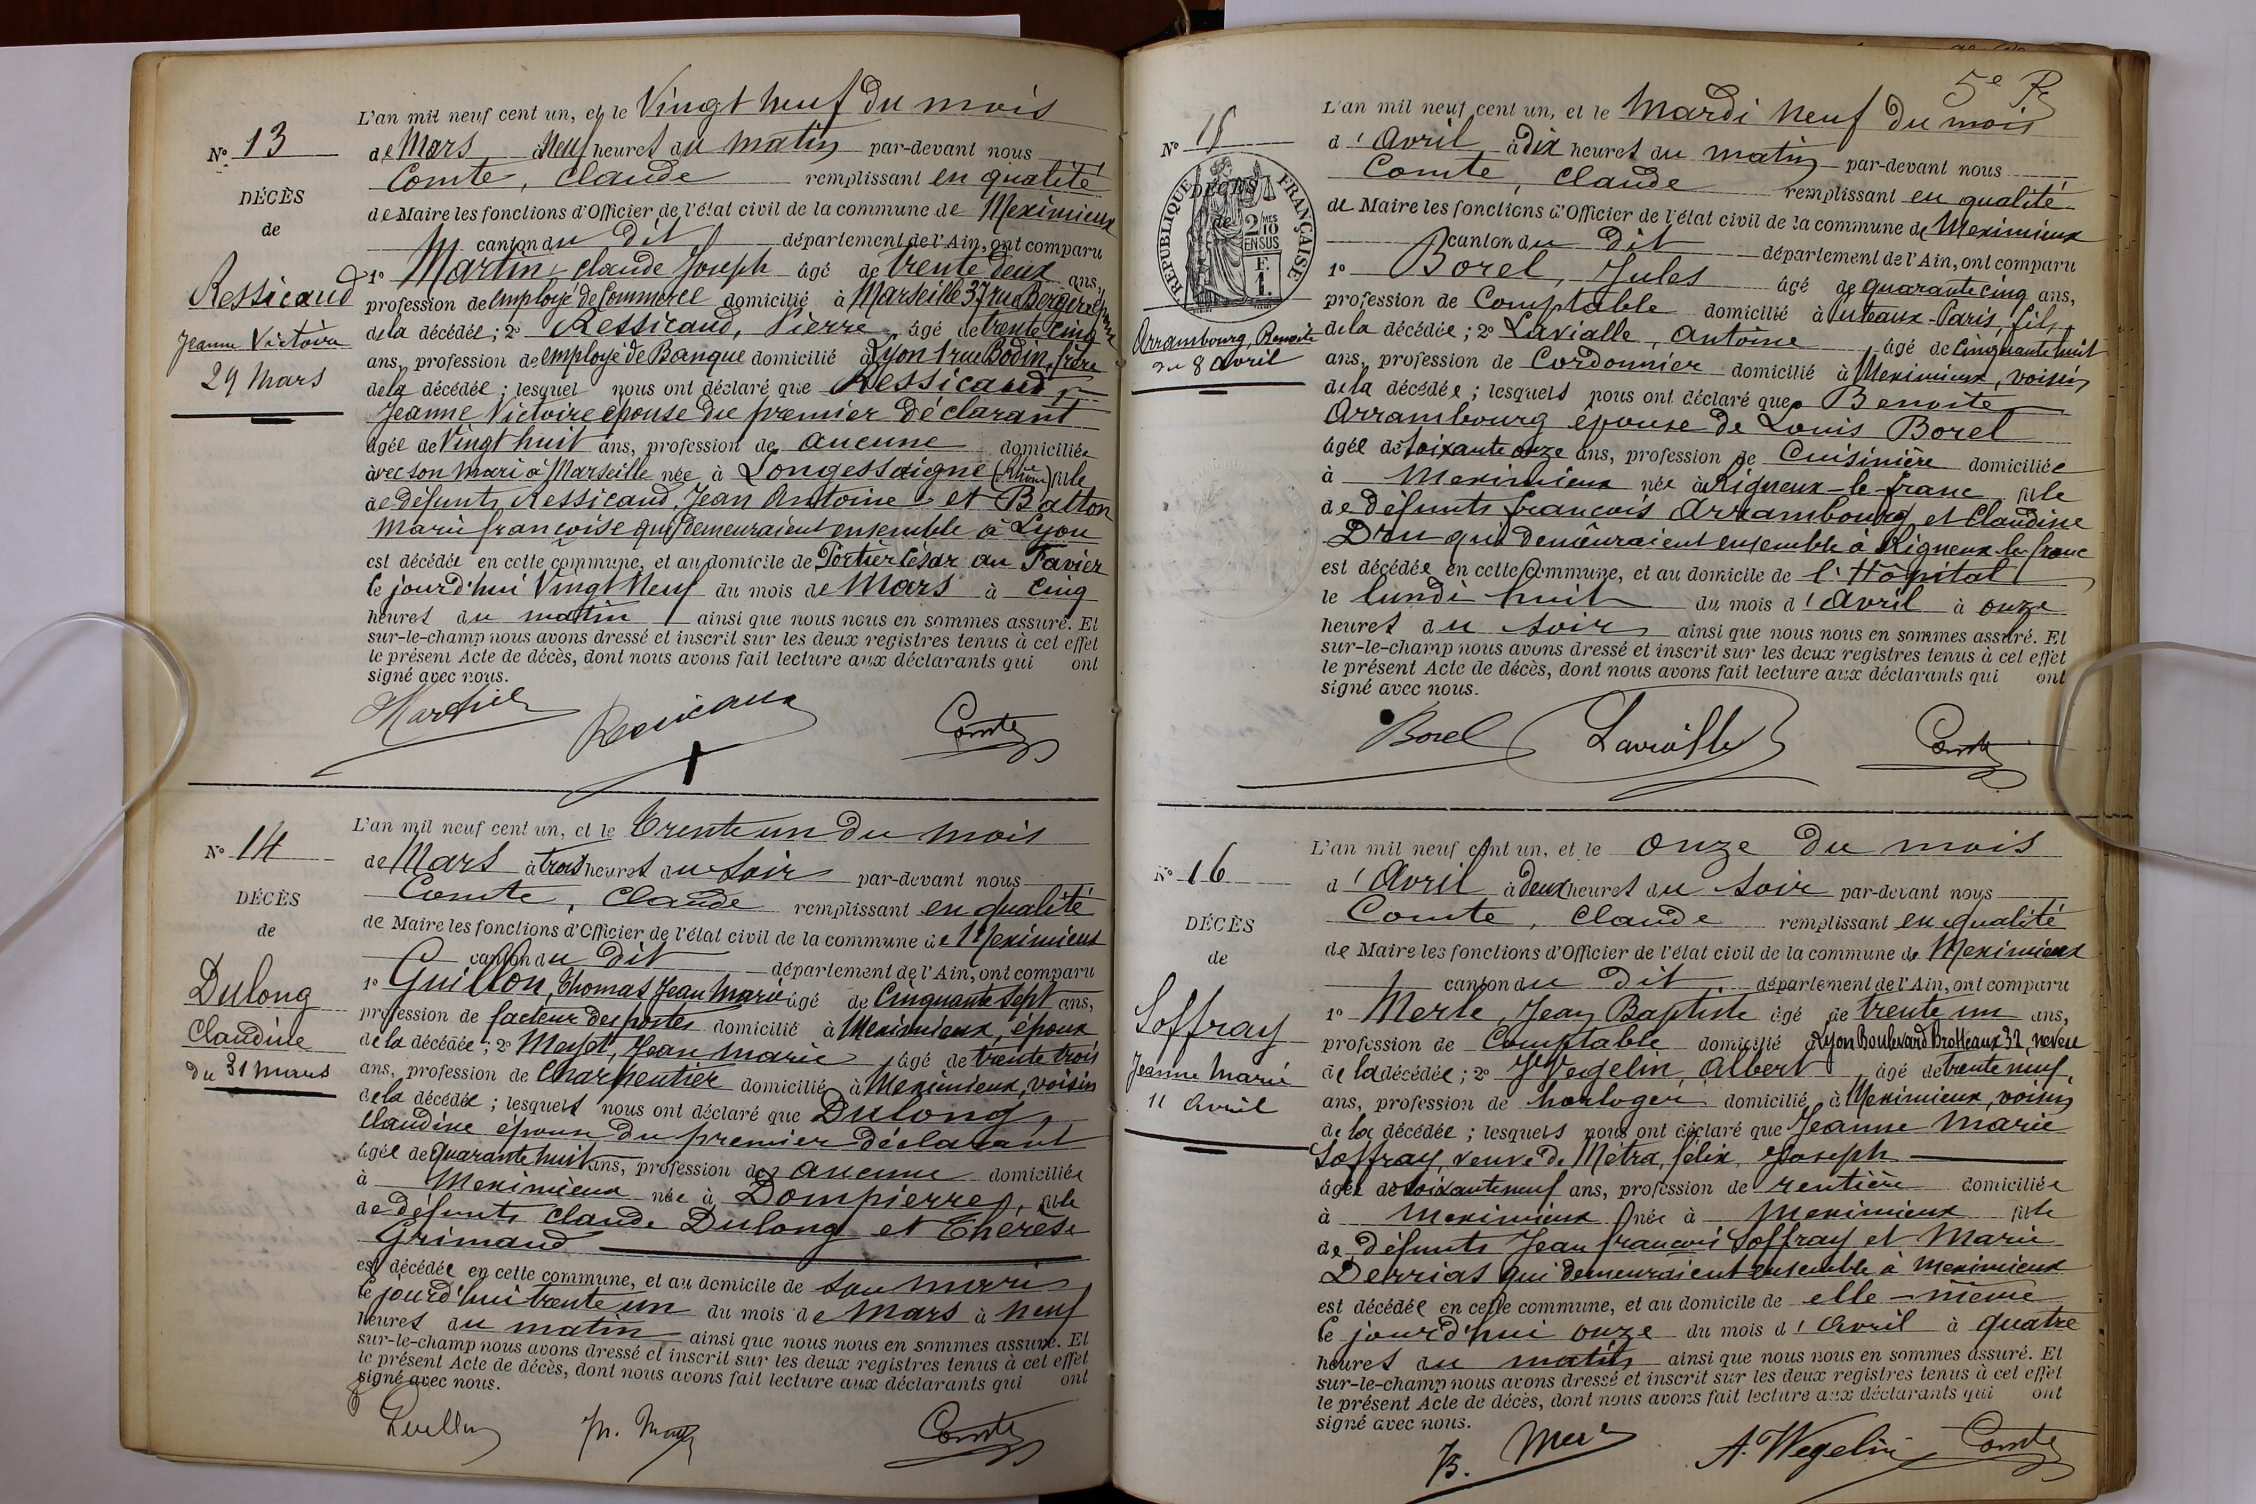 L'an mil neuf cent un, et le Vingt neuf du mois
N° 13
de Mars à Neuf heures du matin par-devant nous
Comte, Claude remplissant en qualité
DÉCÈS
de Maire les fonctions d'Officier de l'état civil de la commune de Meximieux
de
canton du dit département de l'Ain, ont comparu
1° Martin, Claude Joseph âgé de trente deux ans,
Ressicaud
profession de employé de Commerce domicilié à Marseille 37 rue Bergère, époux
Jeanne Victoire
de la décédée ; 2° Ressicaud, Pierre, âgé de trente cinq
29 Mars
ans, profession de employé de Banque domicilié à Lyon 1 rue Bodin, frère
de la décédée ; lesquels nous ont déclaré que Ressicaud,
Jeanne Victoire épouse du premier déclarant
âgée de Vingt huit ans, profession de aucune domiciliée
avec son mari à Marseille née à Longessaigne (Rhône) fille
de défunts Ressicaud, Jean Antoine et Batton
Marie françoise qui demeuraient ensemble à Lyon
est décédée en cette commune, et au domicile de Portier César au Tavier
le jourd'hui Vingt Neuf du mois de Mars à Cinq
heures du matin ainsi que nous nous en sommes assuré. Et
sur-le-champ nous avons dressé et inscrit sur les deux registres tenus à cet effet
le présent Acte de décès, dont nous avons fait lecture aux déclarants qui ont
signé avec nous.
Martin Ressicaud Comte
L'an mil neuf cent un, et le trente un du mois
N° 14
de Mars à trois heures du soir par-devant nous
Comte, Claude remplissant en qualité
DÉCÈS
de Maire les fonctions d'Officier de l'état civil de la commune de Meximieux
de
canton du dit département de l'Ain, ont comparu
Dulong
1° Guillon, Thomas Jean Marie âgé de Cinquante sept ans,
Claudine
profession de facteur des postes domicilié à Meximieux, époux
du 31 mars
de la décédée ; 2° Jean Marie âgé de trente trois
ans, profession de Charpentier domicilié à Meximieux, voisin
de la décédée ; lesquels nous ont déclaré que Dulong,
Claudine épouse du premier déclarant
âgée de quarante huit ans, profession de aucune domiciliée
à Meximieux née à Dompierre, fille
de défunts Claude Dulong et Thérèse
Grimaud
est décédée en cette commune, et au domicile de son mari
le jourd'hui trente un du mois de Mars à neuf
heures du matin ainsi que nous nous en sommes assuré. Et
sur-le-champ nous avons dressé et inscrit sur les deux registres tenus à cet effet
le présent Acte de décès, dont nous avons fait lecture aux déclarants qui ont
signé avec nous.
Comte
5e R
L'an mil neuf cent un, et le Mardi neuf du mois
N° 15
d'Avril à dix heures du matin par-devant nous
Comte, Claude remplissant en qualité
DÉCÈS
de
RÉPUBLIQUE FRANÇAISE
2 MES 10 EN SUS
F. 1.
de Maire les fonctions d'Officier de l'état civil de la commune de Meximieux
canton du dit département de l'Ain, ont comparu
1° Borel, Jules âgé de quarante cinq ans,
profession de Comptable domicilié à Puteaux-Paris, fils
Arrambourg, Benoite
de la décédée ; 2° Lavialle, Antoine, âgé de cinquante huit
du 8 avril
ans, profession de Cordonnier domicilié à Meximieux, voisin
de la décédée ; lesquels nous ont déclaré que Benoite
Arrambourg épouse de Louis Borel
âgée de soixante onze ans, profession de Cuisinière domiciliée
à Meximieux née à Rigneux-le-franc fille
de défunts françois Arrambourg et Claudine
Dru qui demeuraient ensemble à Rigneux le franc
est décédée en cette commune, et au domicile de l'Hôpital
le lundi huit du mois d'Avril à onze
heures du soir ainsi que nous nous en sommes assuré. Et
sur-le-champ nous avons dressé et inscrit sur les deux registres tenus à cet effet
le présent Acte de décès, dont nous avons fait lecture aux déclarants qui ont
signé avec nous.
Borel Lavialle Comte
L'an mil neuf cent un, et le onze du mois
N° 16
d'Avril à deux heures du soir par-devant nous
Comte, Claude remplissant en qualité
DÉCÈS
de Maire les fonctions d'Officier de l'état civil de la commune de Meximieux
de
canton du dit département de l'Ain, ont comparu
Soffray
1° Merle, Jean Baptiste âgé de trente un ans,
profession de Comptable domicilié à Lyon Boulevard Brotteaux 32, neveu
Jeanne Marie
de la décédée ; 2° Wegelin, Albert, âgé de trente neuf
11 avril
ans, profession de horloger domicilié à Meximieux, voisin
de la décédée ; lesquels nous ont déclaré que Jeanne Marie
Soffray, veuve de Métra, félix Joseph
âgée de soixante neuf ans, profession de rentière domiciliée
à Meximieux née à Meximieux fille
de défunts Jean françois Soffray et Marie
Derrias qui demeuraient ensemble à Meximieux
est décédée en cette commune, et au domicile de elle-même
le jourd'hui onze du mois d'Avril à quatre
heures du matin ainsi que nous nous en sommes assuré. Et
sur-le-champ nous avons dressé et inscrit sur les deux registres tenus à cet effet
le présent Acte de décès, dont nous avons fait lecture aux déclarants qui ont
signé avec nous.
A. Wegelin Comte